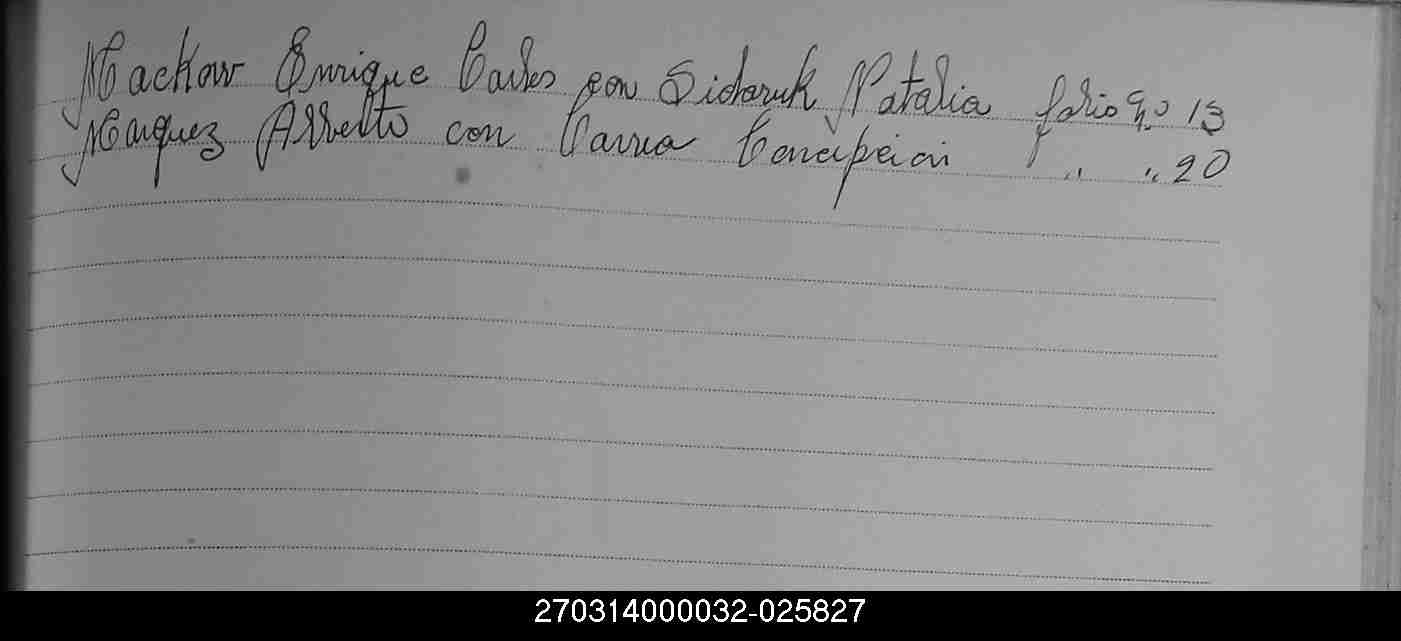 Mackow Enrique Carlos con Sidoruk Natalia folio No 13
Marquez Alberto con Parra Concepcion " " 20
270314000032-025827